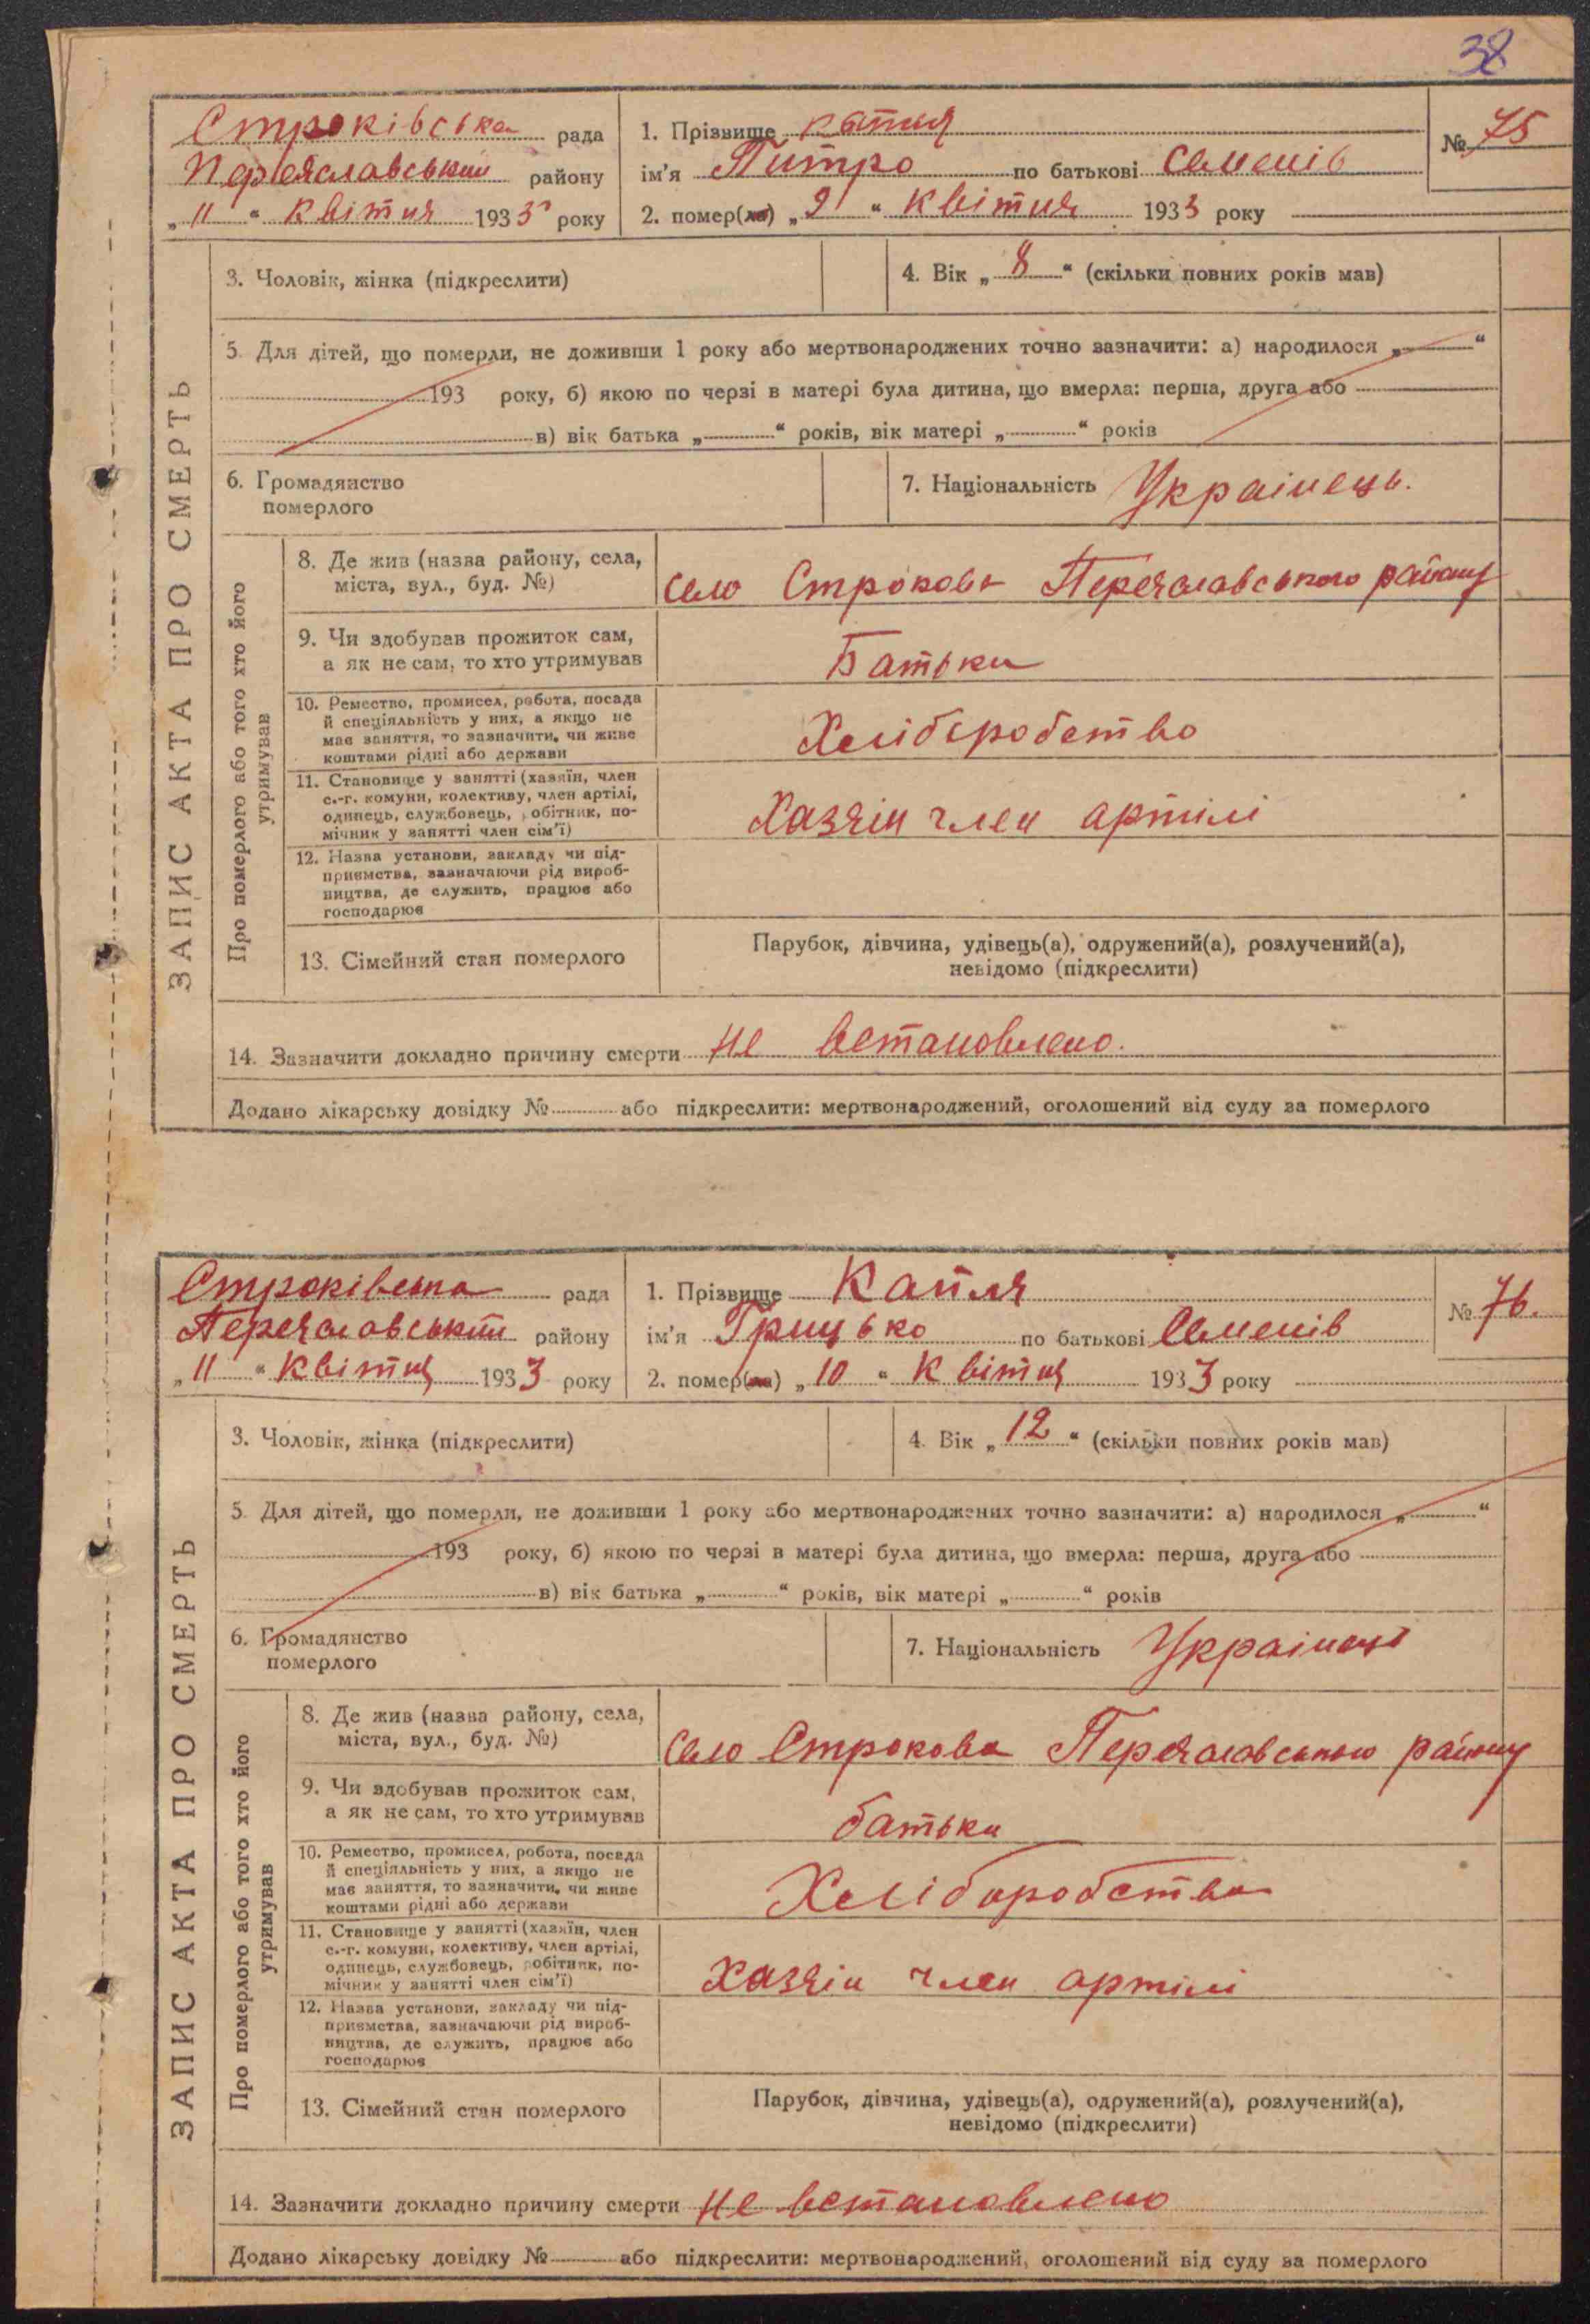 38
Строківська рада
Переяславський району
„11“ Квітня 1933 року
1. Прізвище
ім'я Питро по батькові Семенів
2. помер(ла) „9“ Квітня 1933 року
№ 75
3. Чоловік, жінка (підкреслити)
4. Вік „8“ (скільки повних років мав)
5. Для дітей, що померли, не доживши 1 року або мертвонароджених точно зазначити: а) народилося „ “
193 року, б) якою по черзі в матері була дитина, що вмерла: перша, друга або
в) вік батька „ “ років, вік матері „ “ років
6. Громадянство
померлого
7. Національність Украінець.
ЗАПИС АКТА ПРО СМЕРТЬ
Про померлого або того хто його
утримував
8. Де жив (назва району, села,
міста, вул., буд. №)
село Строкова Переяславського району
9. Чи здобував прожиток сам,
а як не сам, то хто утримував
Батьки
10. Ремество, промисел, робота, посада
й спеціяльність у них, а якщо не
має заняття, то зазначити, чи живе
коштами рідні або держави
Хліборобство
11. Становище у занятті (хазяїн, член
с.-г. комуни, колективу, член артілі,
одинець, службовець, робітник, по-
мічник у занятті член сім'ї)
Хазяін член артілі
12. Назва установи, закладу чи під-
приємства, зазначаючи рід вироб-
ництва, де служить, працює або
господарює
13. Сімейний стан померлого
Парубок, дівчина, удівець(а), одружений(а), розлучений(а),
невідомо (підкреслити)
14. Зазначити докладно причину смерти не встановлено.
Додано лікарську довідку № або підкреслити: мертвонароджений, оголошений від суду за померлого
Строківська рада
Переяславський району
„11“ Квітня 1933 року
1. Прізвище Капля
ім'я Грицько по батькові Семенів
2. помер(ла) „10“ Квітня 1933 року
№ 76.
3. Чоловік, жінка (підкреслити)
4. Вік „12“ (скільки повних років мав)
5. Для дітей, що померли, не доживши 1 року або мертвонароджених точно зазначити: а) народилося „ “
193 року, б) якою по черзі в матері була дитина, що вмерла: перша, друга або
в) вік батька „ “ років, вік матері „ “ років
6. Громадянство
померлого
7. Національність Украінець
ЗАПИС АКТА ПРО СМЕРТЬ
Про померлого або того хто його
утримував
8. Де жив (назва району, села,
міста, вул., буд. №)
село Строкова Переяславського району
9. Чи здобував прожиток сам,
а як не сам, то хто утримував
батьки
10. Ремество, промисел, робота, посада
й спеціяльність у них, а якщо не
має заняття, то зазначити, чи живе
коштами рідні або держави
Хліборобство
11. Становище у занятті (хазяїн, член
с.-г. комуни, колективу, член артілі,
одинець, службовець, робітник, по-
мічник у занятті член сім'ї)
Хазяін член артілі
12. Назва установи, закладу чи під-
приємства, зазначаючи рід вироб-
ництва, де служить, працює або
господарює
13. Сімейний стан померлого
Парубок, дівчина, удівець(а), одружений(а), розлучений(а),
невідомо (підкреслити)
14. Зазначити докладно причину смерти не встановлено
Додано лікарську довідку № або підкреслити: мертвонароджений, оголошений від суду за померлого